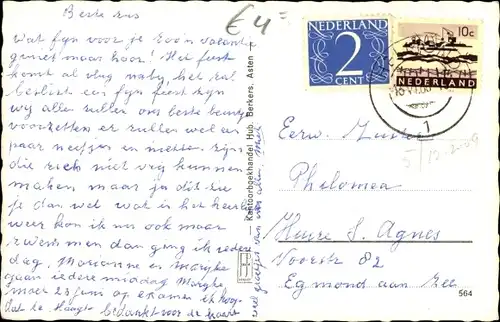 Beste zus
wat fijn voor je zo'n vacantie
geniet maar hoor! Het feest
komt al vlug naby, het zal
beslist een fijn feest zijn
wy allen zullen ons beste beentje
voorzetten er zullen wel een
paar neefjes en nichten zijn
die zich niet vrij kunnen
maken maar ja dit zie
je dan wel wat is het heerlijk
weer kon ik nu ook maar
zwemmen dan ging ik iedere
dag, Marianne en
gaan iedere middag
moet 23 juni op examen
bedankt voor de kaart
veel groetjes van ons allen, Miet
€ 4 =
— Kantoorboekhandel Hub. Berkers, Asten —
NEDERLAND
2
CENT
10c
NEDERLAND
1
5/12-2009
Eerw. Zuster
Philomea
Huize S. Agnes
Voorstr 82
Egmond aan Zee
564